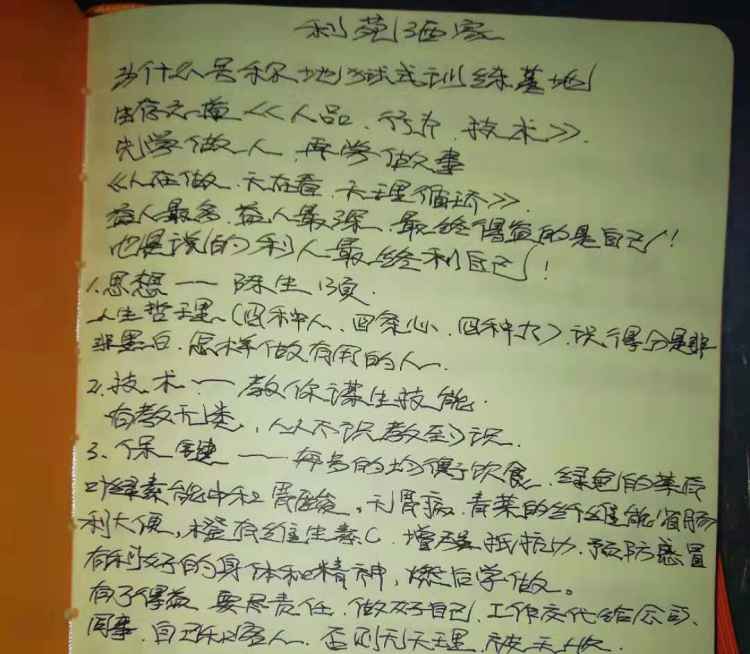 利苑酒家
为什么是称地狱式训练基地
先学做人 再学做事
《人在做.天在看.天理循环》
益人最多.益人最深.最终得益的是自己!
也是说的利人最终利自己!
1.思想一一 陈生
人生哲理(四种人.四条心.四种 )识得分是非
非黑白.怎样做有用的人.
2.技术一一教你谋生技能.
有教无类,人人不识教到识.
3.保健一一 的均衡饮食.绿色的菜
叶绿素能中和胃酸,无胃病.青菜的纤维能省肠
利大便,橙有维生素C.增强抵抗力.预防感冒
有利好的身体和精神,然后学做。
有了得益 要尽责任.做好自己.工作交代给公司、
同事.自己和家人.否则无天理.被天收.